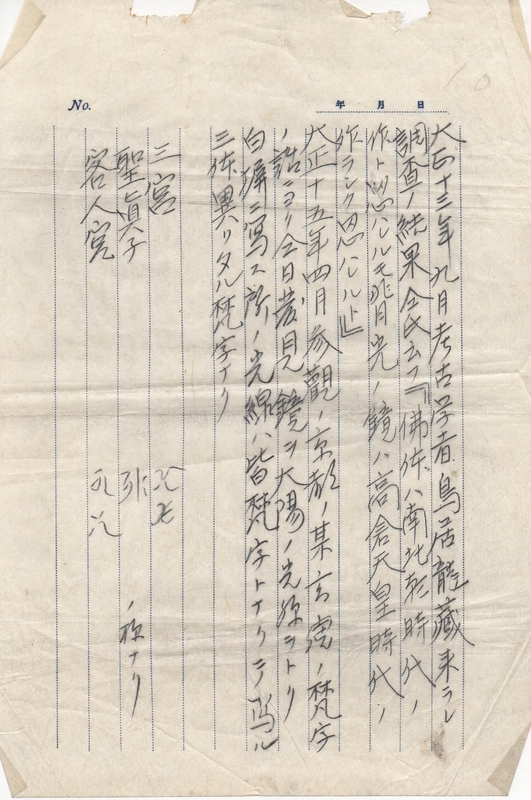 No.
年 月 日
大正十三年九月考古学者鳥居龍藏来ラレ
調査ノ結果仝氏云フ『佛体ハ南北朝時代ノ
作ト思ハルモ月光ノ鏡ハ高倉天皇時代ノ
作ラシク思ハルルト』
大正十五年四月参觀ノ京都ノ某ノ梵字
ノ話ニヨリ仝日発見鏡ヲ太陽ノ光線ヲトリ
白壁ニ寫ス所ノ光線ハ皆梵字トナリテ寫ル
三体異リタル梵字ナリ
三宮
聖眞子 弥 ノ ナリ
客人宮